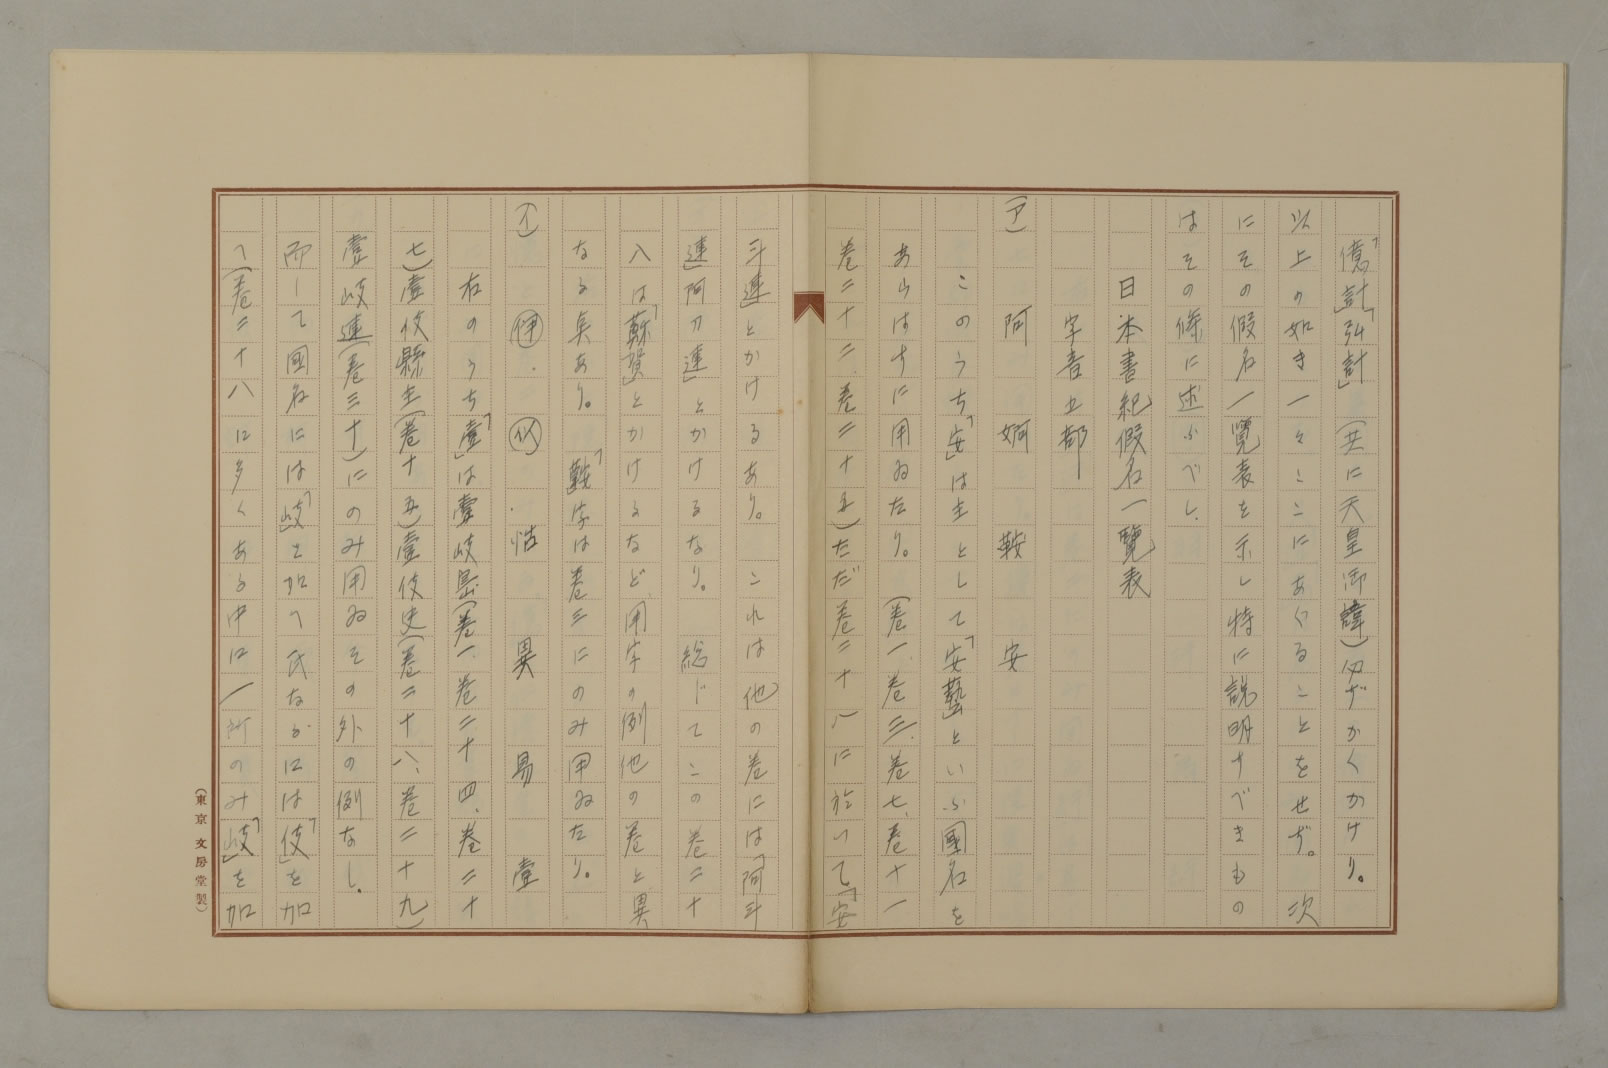 「億計」「弘計」(共に天皇御諱)必ずかくかけり。
以上の如き一々ここにあぐることをせず。次
にその假名一覽表を示し特に説明すべきもの
はその條に述ぶべし。
日本書紀假名一覽表
字音之部
(ア) 阿 婀 鞍 安
このうち「安」は主として「安藝」といふ國名を
あらはすに用ゐたり。(卷一、卷三、卷七、卷十一
卷二十二、卷二十五)ただ卷二十八に於いて「安
斗連」とかけるあり。これは他の卷には「阿斗
連」「阿刀連」とかけるなり。總じてこの卷二十
八は「蘇賀」とかけるなど、用字の例他の卷と異
なる点あり。「鞍」字は卷三にのみ用ゐたり。
(イ) 伊 以 怡 異 易 壹
右のうち「壹」は壹岐島(卷一、卷二十四、卷二十
七)壹伎縣主(卷十五)壹伎史(卷二十八、卷二十九)
壹岐連(卷三十)にのみ用ゐその外の例なし。
而して國名には「岐」を加へ氏なるには「伎」を加
へ(卷二十八に多くある中に一所のみ「岐」を加
(東京 文房堂製)